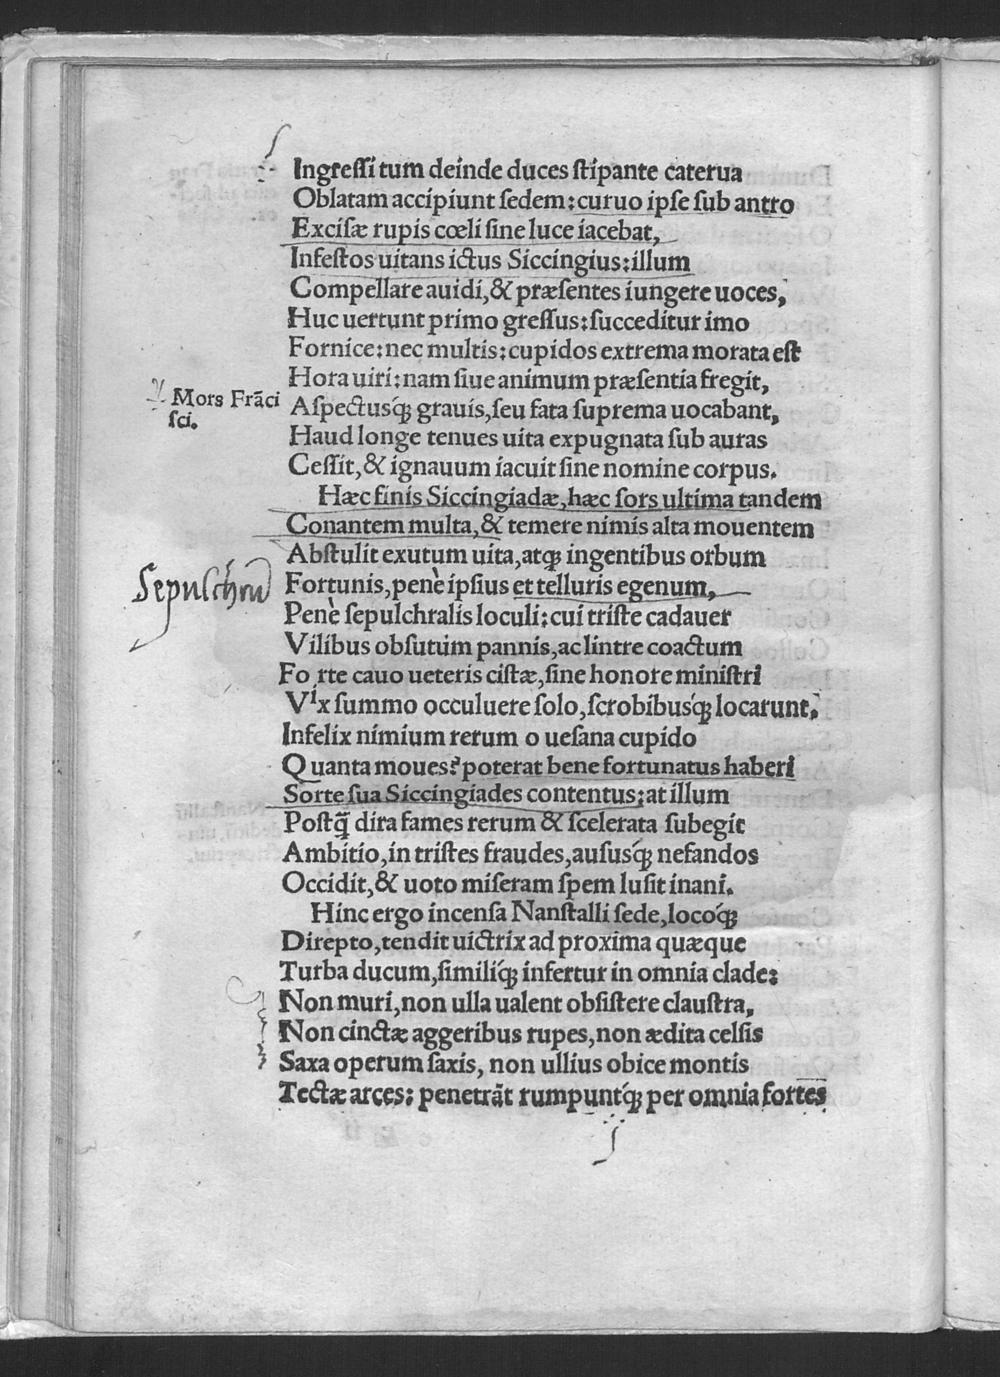 Ingreſſi tum deinde duces ſtipante caterua
Oblatam accipiunt ſedem: curuo ipſe ſub antro
Exciſæ rupis cœli ſine luce iacebat,
Infeſtos uitans ictus Siccingius: illum
Compellare auidi, & præſentes iungere uoces,
Huc uertunt primo greſſus: ſucceditur imo
Fornice: nec multis: cupidos extrema morata eſt
Hora uiri: nam ſiue animum præſentia fregit,
Mors Frãci
ſci.
Aſpectusq́ꝫ grauis, ſeu fata ſuprema uocabant,
Haud longe tenues uita expugnata ſub auras
Ceſſit, & ignauum iacuit ſine nomine corpus.
Hæc finis Siccingiadæ, hæc ſors ultima tandem
Conantem multa, & temere nimis alta mouentem
Abſtulit exutum uita, atqꝫ ingentibus orbum
Sepulchrũ
Fortunis, penè ipſius et telluris egenum,
Penè ſepulchralis loculi: cui triſte cadauer
Vilibus obſutum pannis, ac lintre coactum
Forte cauo ueteris ciſtæ, ſine honore miniſtri
Vix ſummo occuluere ſolo, ſcrobibusq́ꝫ locarunt.
Infelix nimium rerum o ueſana cupido
Quanta moues? poterat bene fortunatus haberi
Sorte ſua Siccingiades contentus: at illum
Poſtq̃ dira fames rerum & ſcelerata ſubegit
Ambitio, in triſtes fraudes, auſusq́ꝫ nefandos
Occidit, & uoto miſeram ſpem luſit inani.
Hinc ergo incenſa Nanſtalli ſede, locoq́ꝫ
Direpto, tendit uictrix ad proxima quæque
Turba ducum, ſimiliq́ꝫ infertur in omnia clade:
Non muri, non ulla ualent obſiſtere clauſtra,
Non cinctæ aggeribus rupes, non ædita celſis
Saxa operum ſaxis, non ullius obice montis
Tectæ arces: penetrãt rumpuntq́ꝫ per omnia fortes